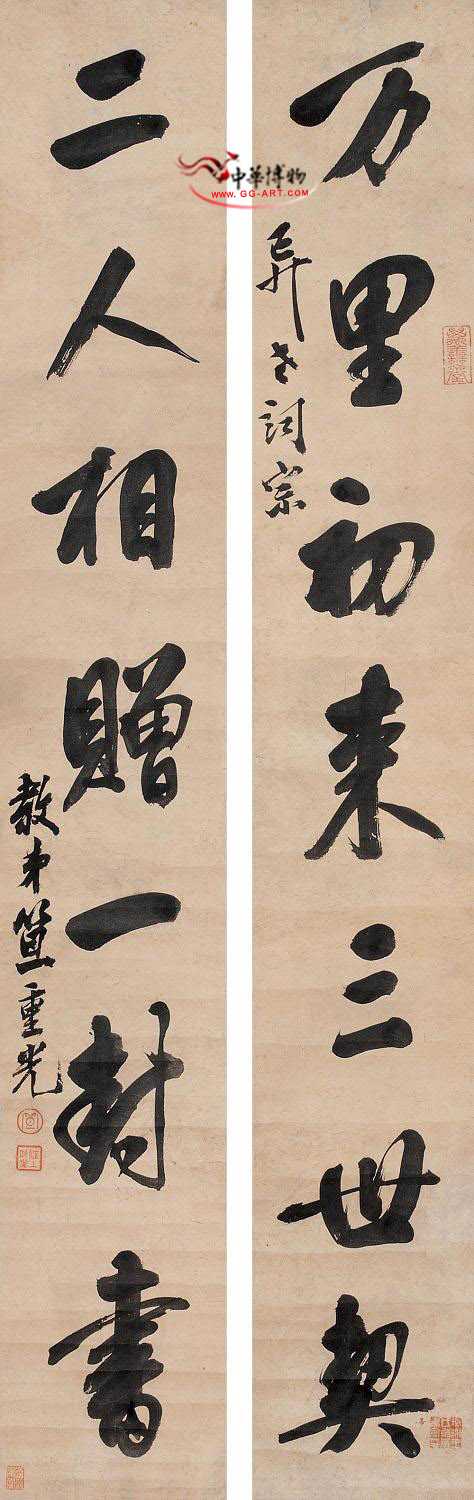 万里初来三世契
异老词宗
二人相贈一封書
教弟笪重光
中華博物
WWW.GG-ART.COM